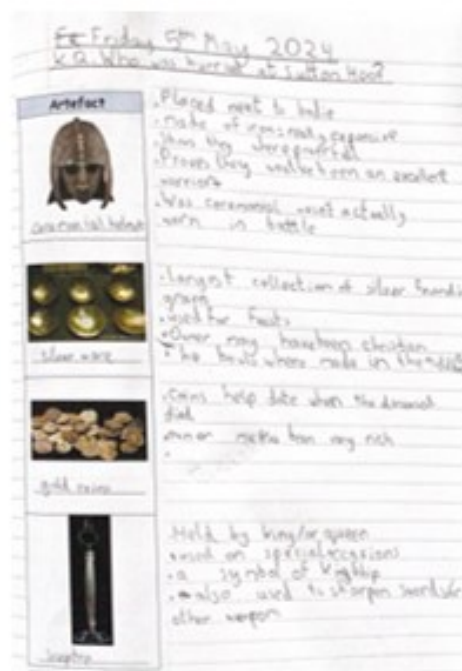 Friday 5th May 2024
K.Q. Who was burried at Sutton Hoo?
Artefact
Ceremonial helmet
.Placed next to bodie
.made of iron
expensive
.Show they were powerful
.Proves they been an excellent
warrior
.Was ceremonial wasn't actually
worn in battle
Silver ware
.Largest collection of silver found in
grave
.used for feasts
.Owner may have been christian
.The bowls where made in the
gold coins
.Coins help date when the deceased
died
rich
.
Sceptre
.Held by king/or queen
.used on special occasions
.a symbol of Kingship
.also used to sharpen swords/or
other weapon